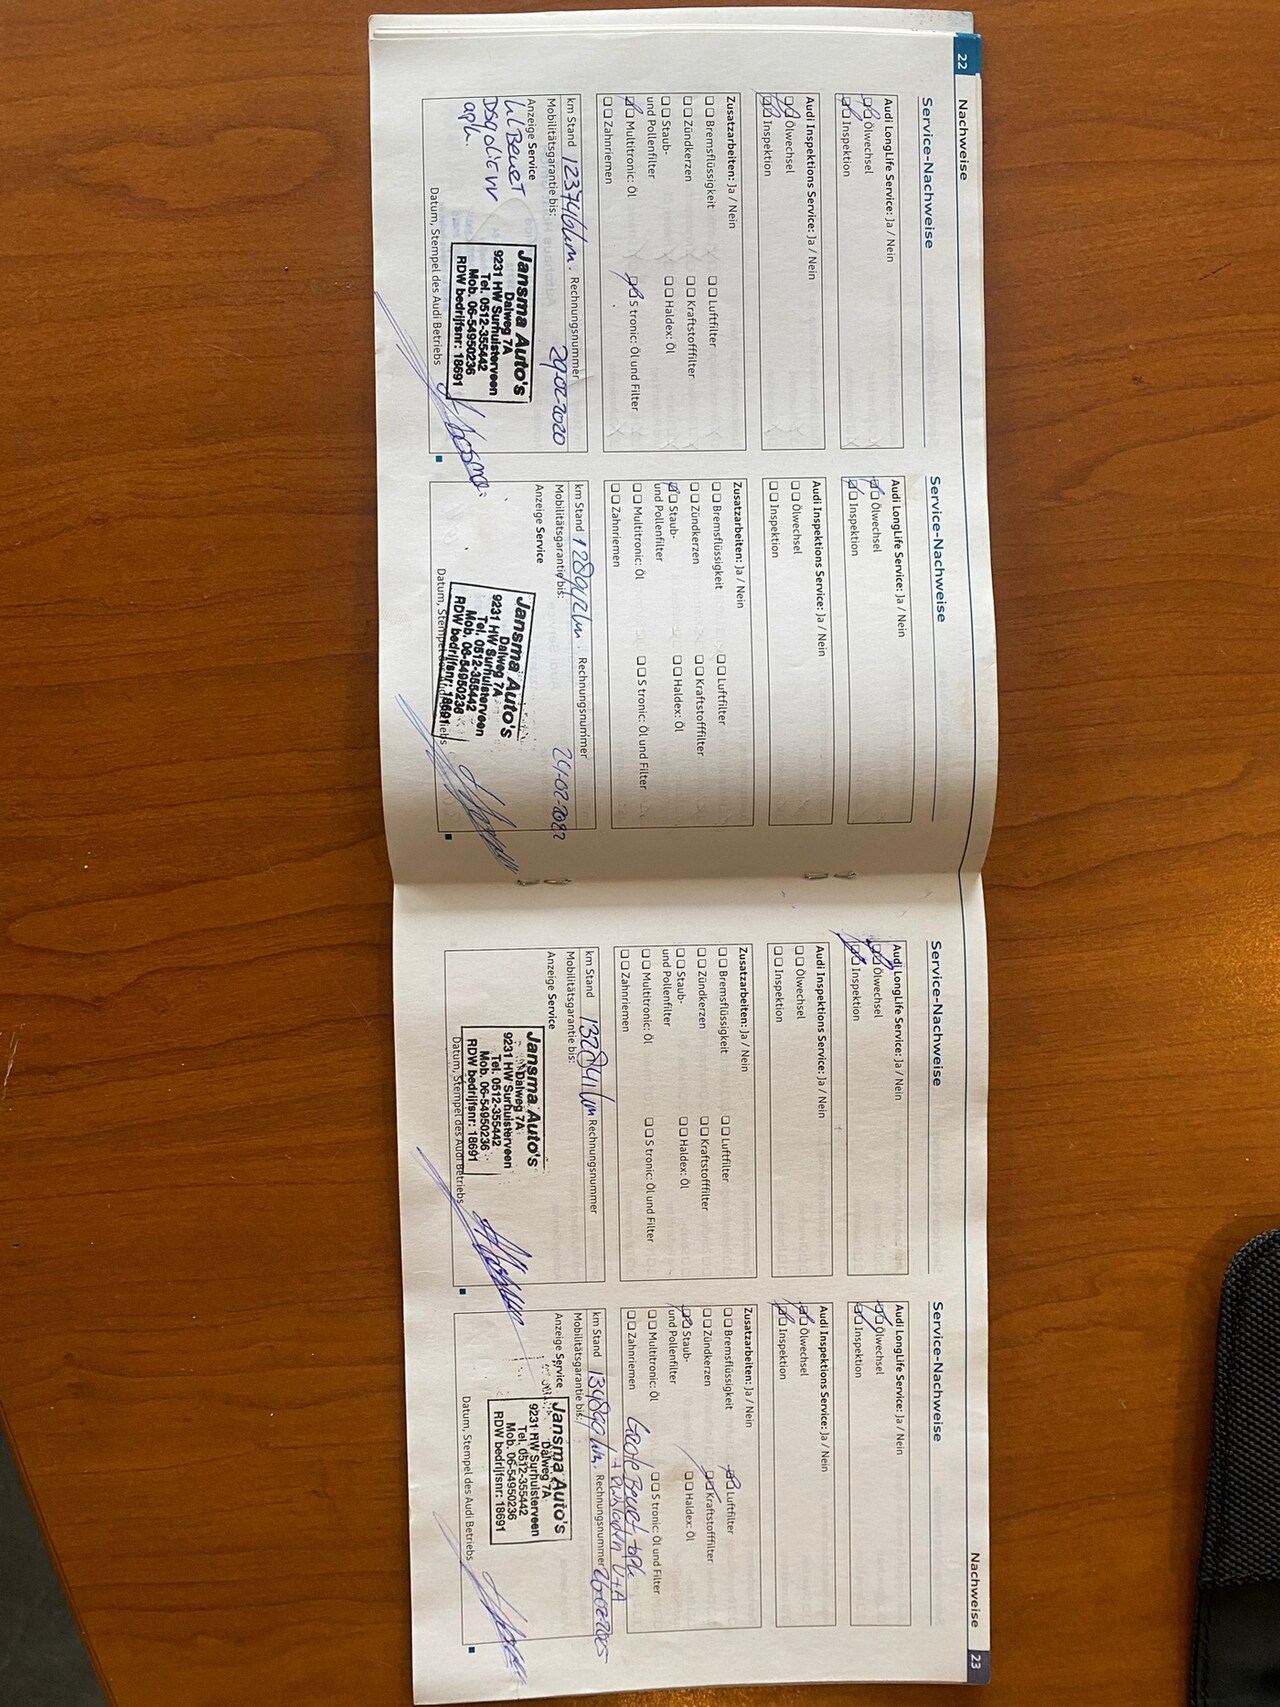 22 Nachweise
Service-Nachweise
Audi LongLife Service: Ja / Nein
Ölwechsel
Inspektion
Audi Inspektions Service: Ja / Nein
Ölwechsel
Inspektion
Zusatzarbeiten: Ja / Nein
Bremsflüssigkeit Luftfilter
Zündkerzen Kraftstofffilter
Staub- Haldex: Öl
und Pollenfilter
Multitronic: Öl S tronic: Öl und Filter
Zahnriemen
km Stand 123746km. Rechnungsnummer
Mobilitätsgarantie bis: 29-02-2020
Anzeige Service
Jansma Auto's
Dalweg 7A
9231 HW Surhuisterveen
Tel. 0512-355442
Mob. 06-54950236
RDW bedrijfsnr: 18691
Datum, Stempel des Audi Betriebs
Service-Nachweise
Audi LongLife Service: Ja / Nein
Ölwechsel
Inspektion
Audi Inspektions Service: Ja / Nein
Ölwechsel
Inspektion
Zusatzarbeiten: Ja / Nein
Bremsflüssigkeit Luftfilter
Zündkerzen Kraftstofffilter
Staub- Haldex: Öl
und Pollenfilter
Multitronic: Öl S tronic: Öl und Filter
Zahnriemen
km Stand 128942km. Rechnungsnummer
Mobilitätsgarantie bis:
Anzeige Service
Jansma Auto's
Dalweg 7A
9231 HW Surhuisterveen
Tel. 0512-355442
Mob. 06-54950236
RDW bedrijfsnr: 18691
Datum, Stempel des Audi Betriebs
Nachweise 23
Service-Nachweise
Audi LongLife Service: Ja / Nein
Ölwechsel
Inspektion
Audi Inspektions Service: Ja / Nein
Ölwechsel
Inspektion
Zusatzarbeiten: Ja / Nein
Bremsflüssigkeit Luftfilter
Zündkerzen Kraftstofffilter
Staub- Haldex: Öl
und Pollenfilter
Multitronic: Öl S tronic: Öl und Filter
Zahnriemen
km Stand Rechnungsnummer
Mobilitätsgarantie bis:
Anzeige Service
Jansma Auto's
Dalweg 7A
9231 HW Surhuisterveen
Tel. 0512-355442
Mob. 06-54950236
RDW bedrijfsnr: 18691
Datum, Stempel des Audi Betriebs
Service-Nachweise
Audi LongLife Service: Ja / Nein
Ölwechsel
Inspektion
Audi Inspektions Service: Ja / Nein
Ölwechsel
Inspektion
Zusatzarbeiten: Ja / Nein
Bremsflüssigkeit Luftfilter
Zündkerzen Kraftstofffilter
Staub- Haldex: Öl
und Pollenfilter
Multitronic: Öl S tronic: Öl und Filter
Zahnriemen Grote Beurt
km Stand 134899km. Rechnungsnummer 26-02-2025
Mobilitätsgarantie bis:
Anzeige Service
Jansma Auto's
Dalweg 7A
9231 HW Surhuisterveen
Tel. 0512-355442
Mob. 06-54950236
RDW bedrijfsnr: 18691
Datum, Stempel des Audi Betriebs